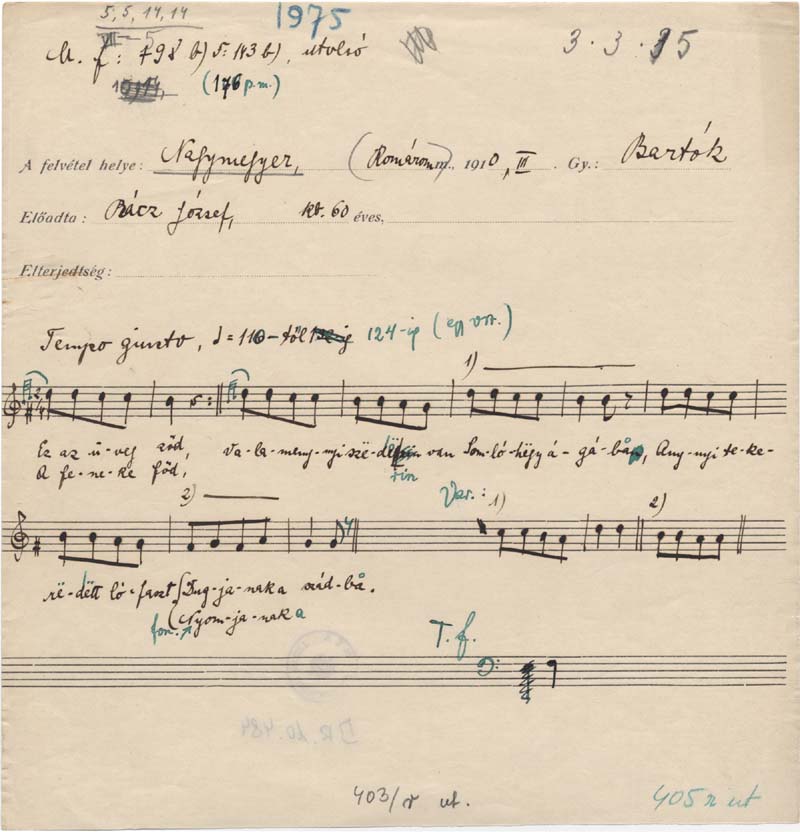 5, 5, 14, 14
1975
VII—5
M. f: 798 b) 5: 143 b), utolsó
3 · 3 · 35
(176 p.m.)
A felvétel helye: Nagymegyer, (Komárom m., 1910, III. Gy.: Bartók
Előadta: Rácz József, kb. 60 éves.
Elterjedtség:
Tempo giusto, = 110-től 124-ig
1)
Ez az ü-veg zöd, Va-la-meny-nyi szë-de van Som-ló-hëgy á-gá-bå, Any-nyi te-ke-
A fe-ne-ke föd,
rin
2)
Var.: 1) 2)
rë-dëtt ló-faszt Dug-ja-nak a szád-bå.
fon. Nyom-ja-nak a
T. f.
BR. 10.484
403/r ut.
405 r ut